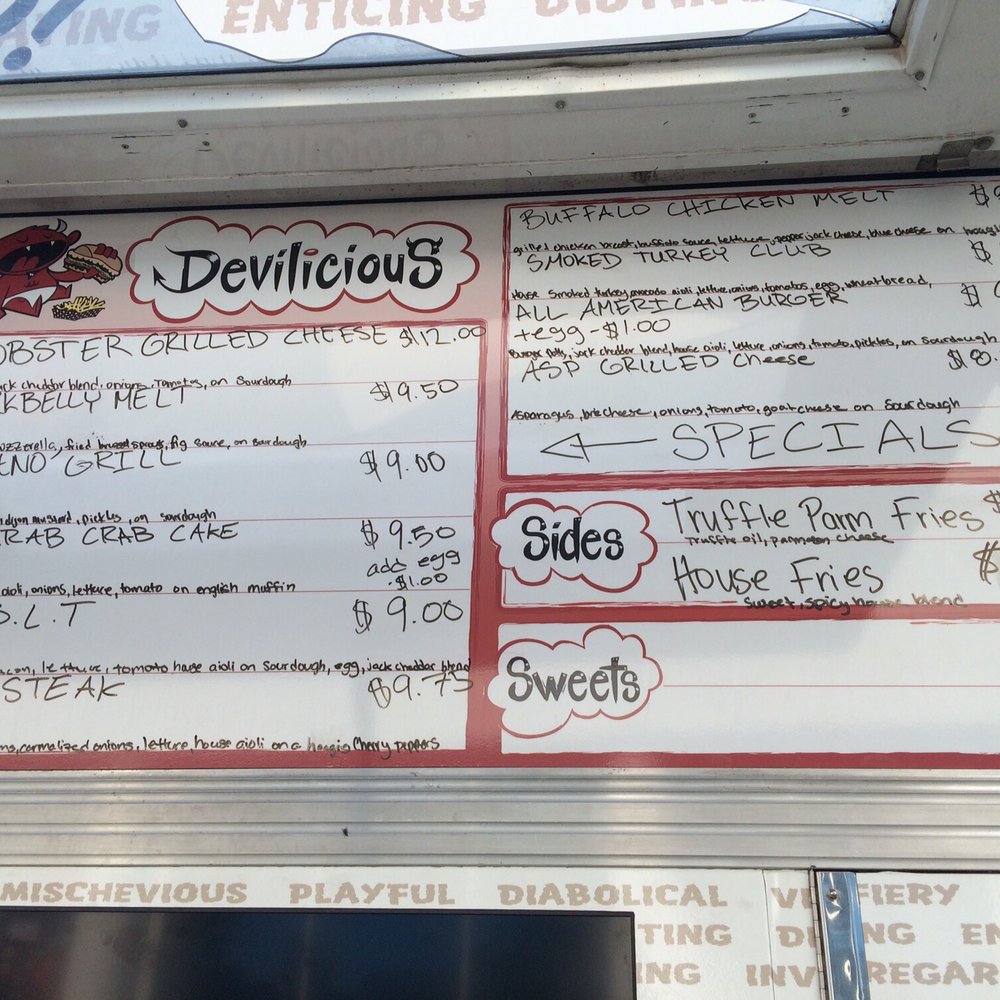 ATING ENTICING
Devilicious
OBSTER GRILLED CHEESE $12.00
ck cheddar blend, onions, tomatos, on sourdough
KBELLY MELT $9.50
ozzerella, fried brussel sprouts, fig saune, on sourdough
ENO GRILL $9.00
dijon mustard, pickles, on sourdough
RAB CRAB CAKE $9.50
add egg
$1.00
aioli, onions, lettuce, tomato on english muffin
.L.T $9.00
acon, lettuce, tomato hause aioli on sourdough, egg, jack cheddar blend
STEAK $9.75
carmalized onions, letture, house aioli on a hoagie Cherry peppers
BUFFALO CHICKEN MELT $
grilled chicken breast, buffalo sauce, lettuce, pepper jack cheese, blue cheese on
SMOKED TURKEY CLUB $
House smoked turkey, avocado aioli, lettuce, onions, tomatos, egg, wheat bread,
ALL AMERICAN BURGER $
+egg - $1.00
Burger Patty, jack cheddar blend, house aioli, letture, onions, tomato, pickles, on sourdough
ASP GRILLED Cheese $8.
Asparagus, brie cheese, onions, tomato, goat cheese on sourdough
SPECIALS
Sides
Truffle Parm Fries $
truffle oil, parmesan cheese
House Fries $
sweet, spicy house blend
Sweets
MISCHEVIOUS PLAYFUL DIABOLICAL FIERY
TING NG
NG INV REGAR